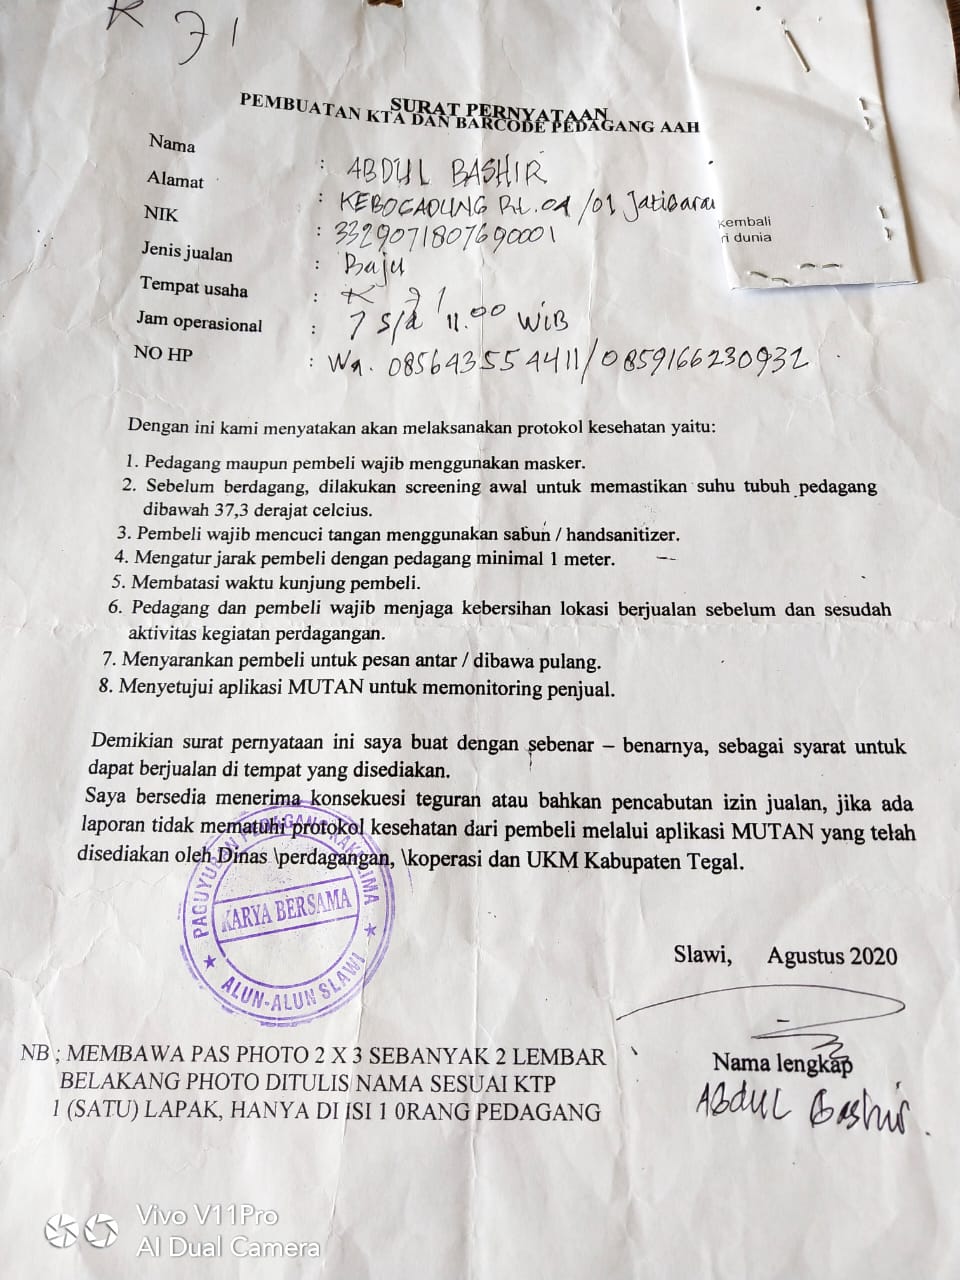 K 71
SURAT PERNYATAAN
PEMBUATAN KTA DAN BARCODE PEDAGANG AAH
Nama : ABDUL BASHIR
Alamat : KEBOGADUNG Rt. 04 /01 Jatibarar
NIK : 3329071807690001
Jenis jualan : Baju
Tempat usaha : K 71
Jam operasional : 7 s/d 11.00 WIB
NO HP : Wa. 085643554411/0859166230932
kembali
ri dunia
Dengan ini kami menyatakan akan melaksanakan protokol kesehatan yaitu:
1. Pedagang maupun pembeli wajib menggunakan masker.
2. Sebelum berdagang, dilakukan screening awal untuk memastikan suhu tubuh pedagang
dibawah 37,3 derajat celcius.
3. Pembeli wajib mencuci tangan menggunakan sabun / handsanitizer.
4. Mengatur jarak pembeli dengan pedagang minimal 1 meter.
5. Membatasi waktu kunjung pembeli.
6. Pedagang dan pembeli wajib menjaga kebersihan lokasi berjualan sebelum dan sesudah
aktivitas kegiatan perdagangan.
7. Menyarankan pembeli untuk pesan antar / dibawa pulang.
8. Menyetujui aplikasi MUTAN untuk memonitoring penjual.
Demikian surat pernyataan ini saya buat dengan sebenar – benarnya, sebagai syarat untuk
dapat berjualan di tempat yang disediakan.
Saya bersedia menerima konsekuesi teguran atau bahkan pencabutan izin jualan, jika ada
laporan tidak mematuhi protokol kesehatan dari pembeli melalui aplikasi MUTAN yang telah
disediakan oleh Dinas \perdagangan, \koperasi dan UKM Kabupaten Tegal.
PAGUYUBAN PEDAGANG KAKI LIMA
KARYA BERSAMA
ALUN-ALUN SLAWI
Slawi, Agustus 2020
Nama lengkap
Abdul Bashir.
NB ; MEMBAWA PAS PHOTO 2 X 3 SEBANYAK 2 LEMBAR
BELAKANG PHOTO DITULIS NAMA SESUAI KTP
1 (SATU) LAPAK, HANYA DI ISI 1 0RANG PEDAGANG
Vivo V11Pro
AI Dual Camera